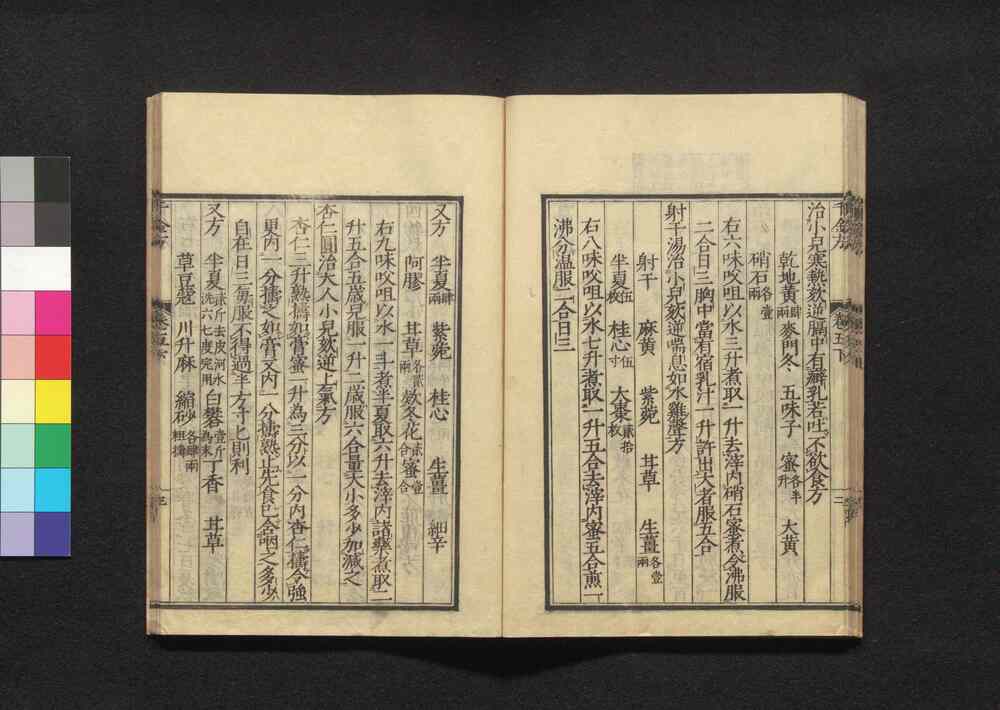 治小兒寒熱欬逆膈中有澼乳若吐不欲食方
乾地黃肆兩 麥門冬 五味子 蜜各半升 大黃
硝石各壹兩
右六味㕮咀以水三升煮取一升去滓內硝石蜜煮令沸服
二合日三胸中當有宿乳汁一升許出大者服五合
射干湯治小兒欬逆喘息如水雞聲方
射干 麻黃 紫菀 甘草 生薑各壹兩
半夏伍枚 桂心伍寸 大棗貳拾枚
右八味㕮咀以水七升煮取一升五合去滓內蜜五合煎一
沸分溫服二合日三
又方 半夏肆兩 紫菀 桂心 生薑 細辛
阿膠 甘草各貳兩 款冬花貳合 蜜壹合
右九味㕮咀以水一斗煮半夏取六升去滓內諸藥煮取二
升五合五歲兒服一升二歲服六合量大小多少加減之
杏仁圓治大人小兒欬逆上氣方
杏仁三升熟擣如膏蜜一升為三分以一分內杏仁擣令強
更內一分擣之如膏又內一分擣熟止先食已含咽之多少
自在日三每服不得過半方寸匕則利
又方 半夏貳斤去皮河水洗六七度完用 白礬壹斤為末 丁香 甘草
草豆蔻 川升麻 縮砂各肆兩粗擣